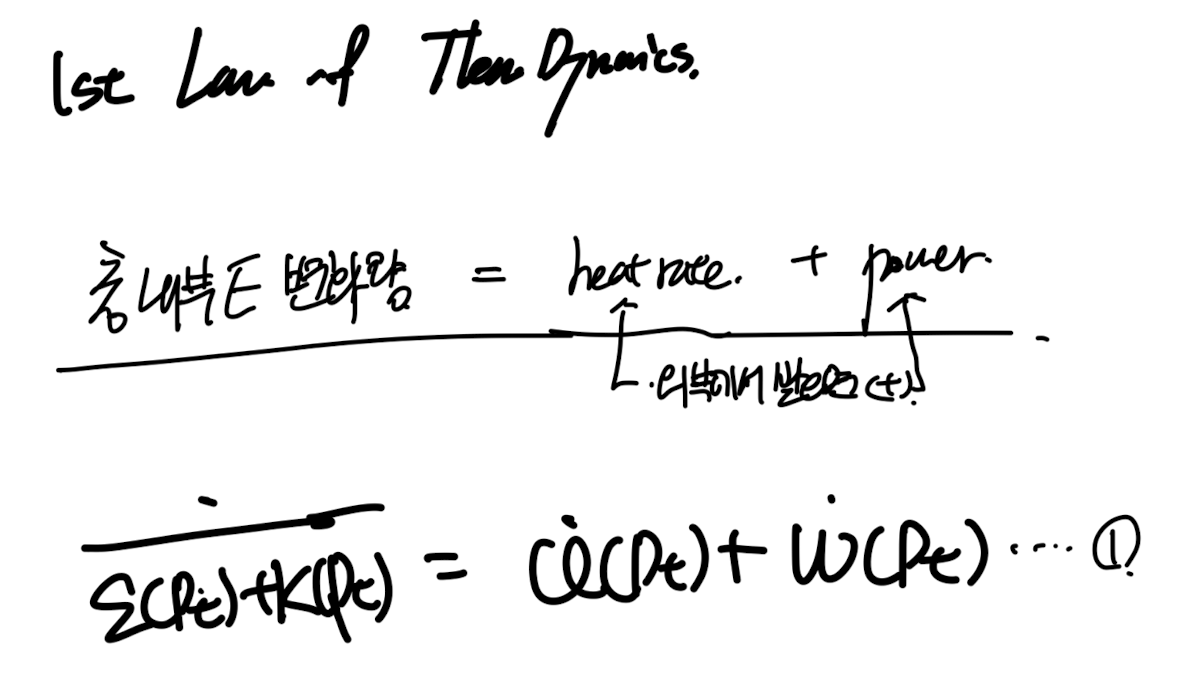 1st Law of ThermoDynamics.
총 내부 E 변화량 = heat rate. + power.
외부에서 받으면 (+).
\dot{\overline{Σ(P_t)+K(P_t)}} = \dot{Q}(P_t) + \dot{W}(P_t) ····· ①